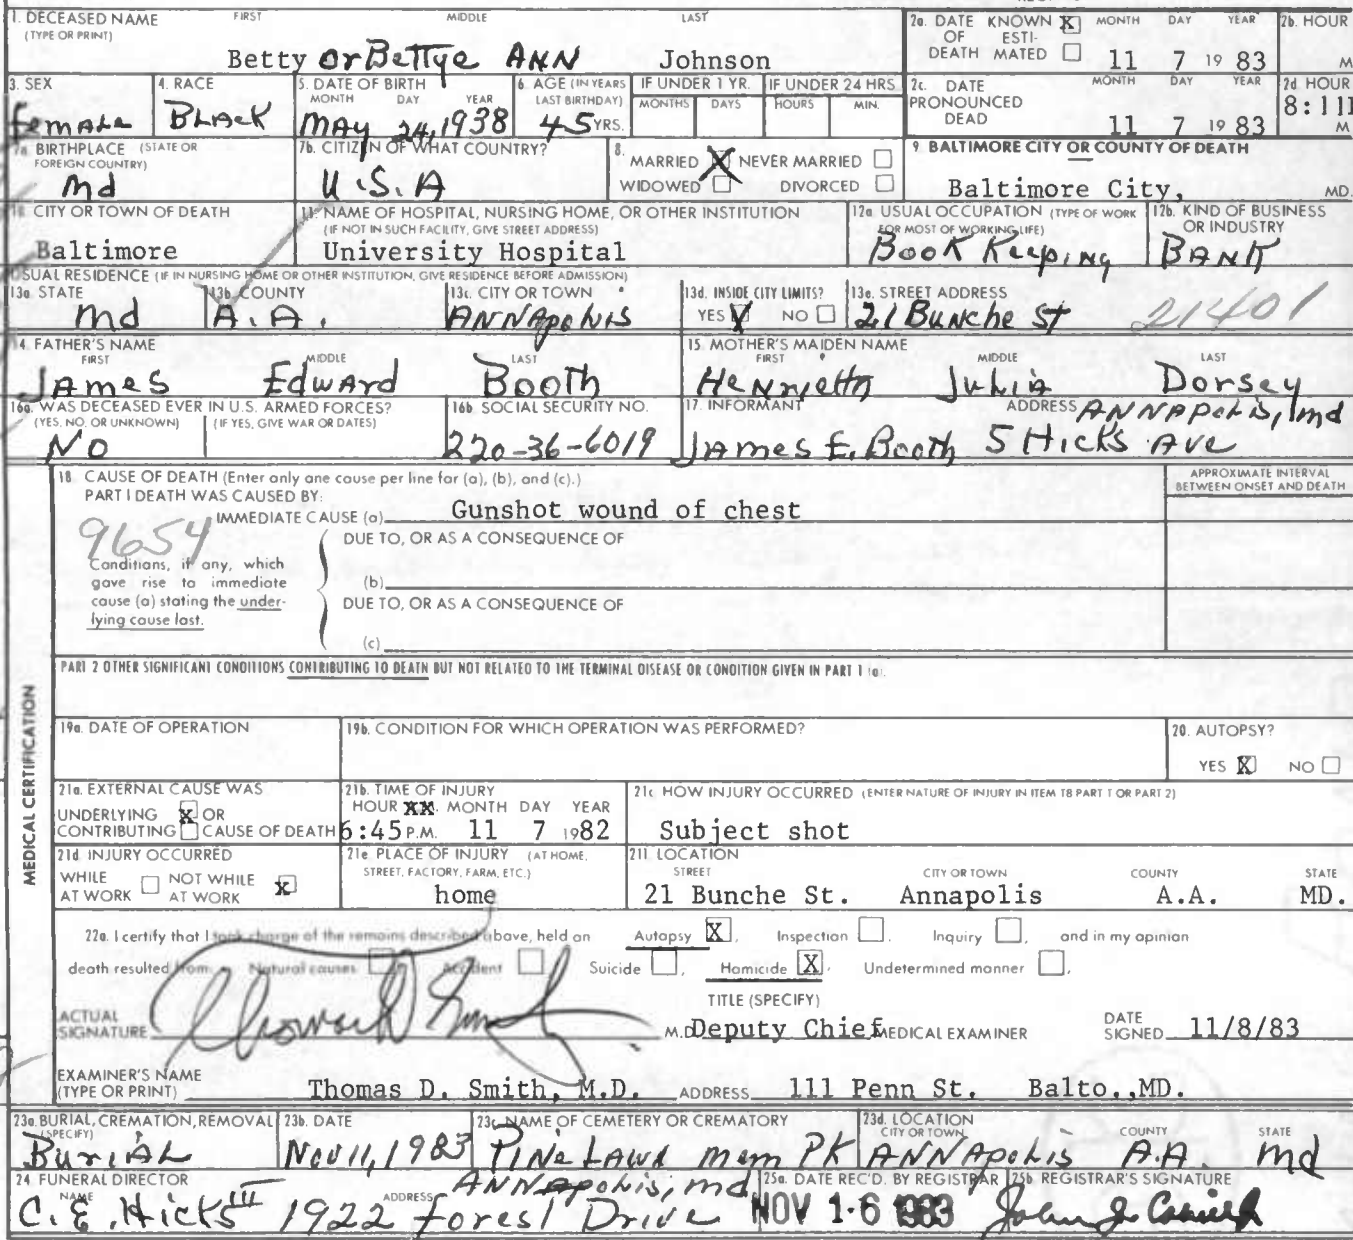 1. DECEASED NAME FIRST MIDDLE LAST
(TYPE OR PRINT)
Betty or Bettye ANN Johnson
2a. DATE KNOWN X MONTH DAY YEAR
OF ESTI-
DEATH MATED 11 7 1983
2b. HOUR
M
3. SEX
Female
4. RACE
BLACK
5. DATE OF BIRTH
MONTH DAY YEAR
MAY 24, 1938
6. AGE (IN YEARS
LAST BIRTHDAY)
45 YRS.
IF UNDER 1 YR.
MONTHS DAYS
IF UNDER 24 HRS
HOURS MIN.
2c. DATE MONTH DAY YEAR
PRONOUNCED
DEAD 11 7 1983
2d HOUR
8:11
M
7a BIRTHPLACE (STATE OR
FOREIGN COUNTRY)
Md
7b. CITIZEN OF WHAT COUNTRY?
U.S.A
8.
MARRIED X NEVER MARRIED
WIDOWED DIVORCED
9. BALTIMORE CITY OR COUNTY OF DEATH
Baltimore City, MD.
10 CITY OR TOWN OF DEATH
Baltimore
11. NAME OF HOSPITAL, NURSING HOME, OR OTHER INSTITUTION
(IF NOT IN SUCH FACILITY, GIVE STREET ADDRESS)
University Hospital
12a USUAL OCCUPATION (TYPE OF WORK
FOR MOST OF WORKING LIFE)
BOOK Keeping
12b. KIND OF BUSINESS
OR INDUSTRY
BANK
USUAL RESIDENCE (IF IN NURSING HOME OR OTHER INSTITUTION, GIVE RESIDENCE BEFORE ADMISSION)
13a. STATE
Md
13b COUNTY
A.A.
13c. CITY OR TOWN
ANNApolis
13d. INSIDE CITY LIMITS?
YES X NO
13e. STREET ADDRESS
21 Bunche St 21401
14. FATHER'S NAME
FIRST MIDDLE LAST
JAmes Edward Booth
15. MOTHER'S MAIDEN NAME
FIRST MIDDLE LAST
Henrietta Julia Dorsey
16a. WAS DECEASED EVER IN U.S. ARMED FORCES?
(YES, NO, OR UNKNOWN) (IF YES, GIVE WAR OR DATES)
NO
16b. SOCIAL SECURITY NO.
220-36-6019
17. INFORMANT ADDRESS ANNApolis, md
JAmes E. Booth 5 Hicks Ave
18 CAUSE OF DEATH (Enter only one cause per line for (a), (b), and (c).)
PART I DEATH WAS CAUSED BY:
APPROXIMATE INTERVAL
BETWEEN ONSET AND DEATH
IMMEDIATE CAUSE (a) Gunshot wound of chest
9654
DUE TO, OR AS A CONSEQUENCE OF
Conditions, if any, which
gave rise to immediate
cause (a) stating the under-
lying cause last.
(b)
DUE TO, OR AS A CONSEQUENCE OF
(c)
PART 2 OTHER SIGNIFICANT CONDITIONS CONTRIBUTING TO DEATH BUT NOT RELATED TO THE TERMINAL DISEASE OR CONDITION GIVEN IN PART 1 (a).
MEDICAL CERTIFICATION
19a. DATE OF OPERATION
19b. CONDITION FOR WHICH OPERATION WAS PERFORMED?
20. AUTOPSY?
YES X NO
21a. EXTERNAL CAUSE WAS
UNDERLYING X OR
CONTRIBUTING CAUSE OF DEATH
21b. TIME OF INJURY
HOUR XX. MONTH DAY YEAR
6:45 P.M. 11 7 1982
21c HOW INJURY OCCURRED (ENTER NATURE OF INJURY IN ITEM 18 PART 1 OR PART 2)
Subject shot
21d INJURY OCCURRED
WHILE NOT WHILE
AT WORK AT WORK X
21e PLACE OF INJURY (AT HOME,
STREET, FACTORY, FARM, ETC.)
home
21f. LOCATION
STREET CITY OR TOWN COUNTY STATE
21 Bunche St. Annapolis A.A. MD.
22a. I certify that I took charge of the remains described above, held an Autopsy X, Inspection, Inquiry, and in my opinion
death resulted from: Natural causes Accident Suicide, Homicide X. Undetermined manner.
ACTUAL
SIGNATURE
TITLE (SPECIFY)
M.D. Deputy Chief MEDICAL EXAMINER
DATE
SIGNED 11/8/83
EXAMINER'S NAME
(TYPE OR PRINT) Thomas D. Smith, M.D. ADDRESS 111 Penn St. Balto., MD.
23a. BURIAL, CREMATION, REMOVAL
(SPECIFY)
BuriAL
23b. DATE
Nov 11, 1983
23c. NAME OF CEMETERY OR CREMATORY
Pine Lawn mem PK
23d. LOCATION
CITY OR TOWN COUNTY STATE
ANNApolis A.A. md
24 FUNERAL DIRECTOR
NAME ADDRESS ANNApolis, md
C.E. Hicks III 1922 Forest Drive
25a. DATE REC'D. BY REGISTRAR
NOV 16 1983
25b. REGISTRAR'S SIGNATURE